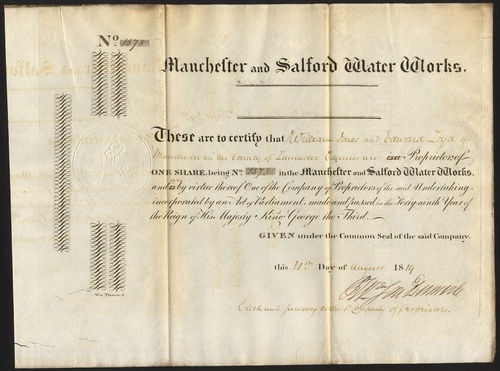 No. 1573
Manchester and Salford Water Works.
These are to certify that William Jones and Edward Loyd of
Manchester in the County of Lancaster Esquires are Proprietors of
ONE SHARE, being No. 1573 in the Manchester and Salford Water Works.
and by virtue thereof One of the Company of Proprietors of the said Undertaking
incorporated by an Act of Parliament, made and passed in the Forty ninth Year of
the Reign of His Majesty King George the Third.
GIVEN under the Common Seal of the said Company.
this 21st Day of August 1819
Clerk and to the Company of proprietors.